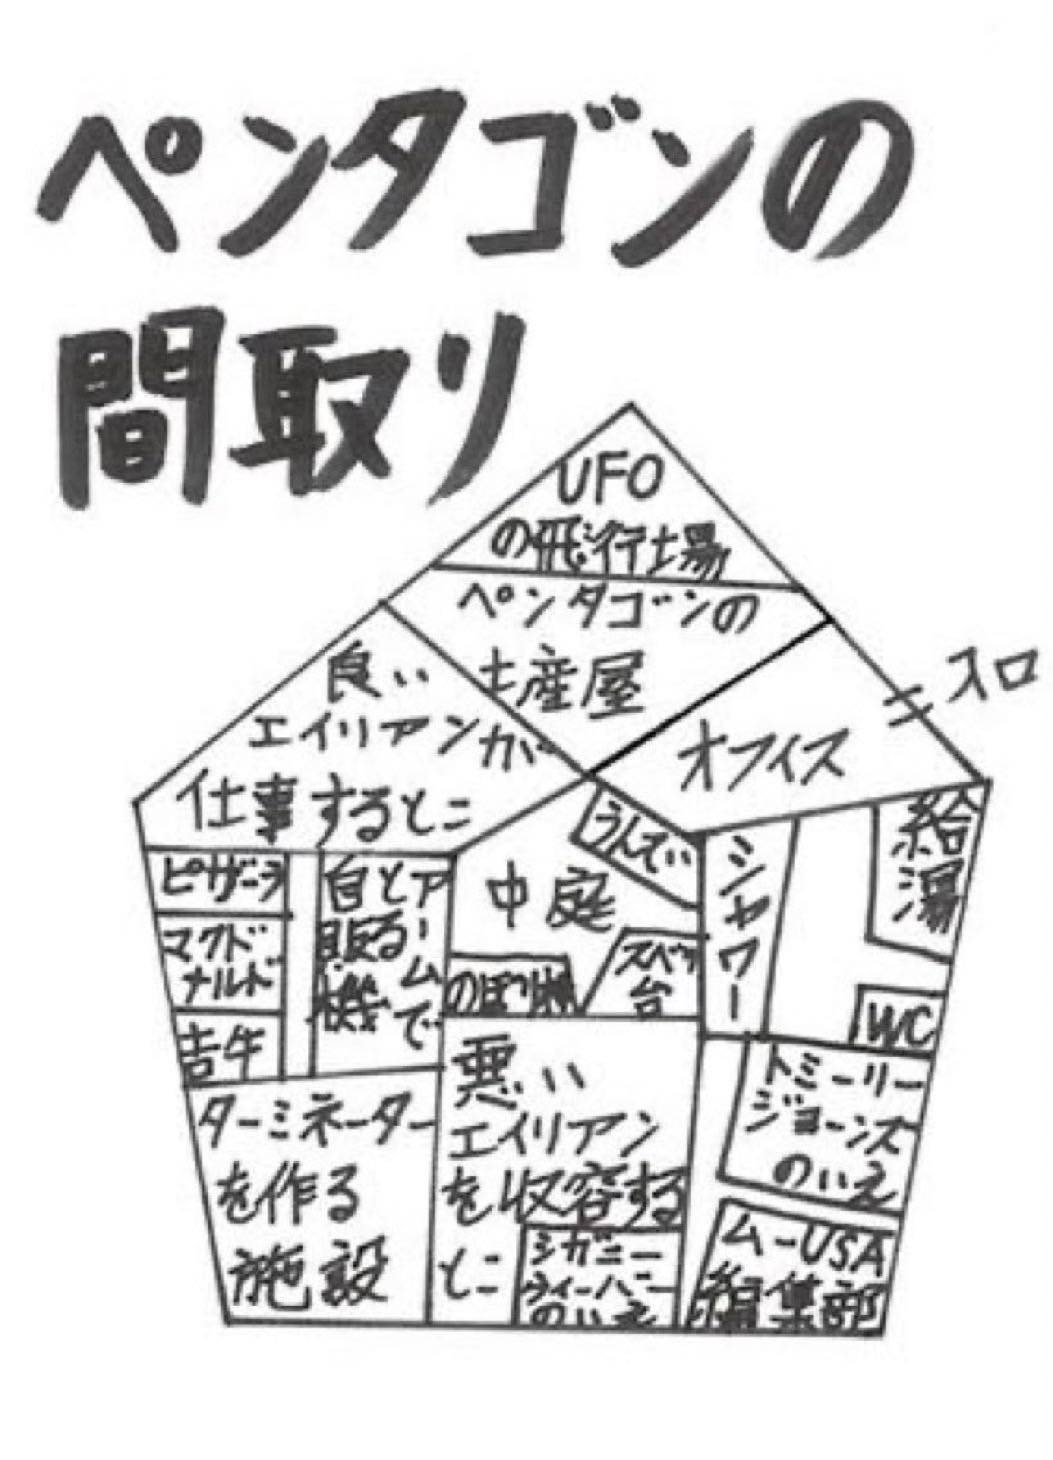 ペンタゴンの
間取り
UFO
の飛行場
ペンタゴンの
土産屋
入口
オフィス
良い
エイリアンが
仕事するとこ
ピザーラ
マクド
ナルド
吉牛
自販機
とるーム
アーで
中庭
うんてい
のぼり棒
スベリ
台
シャワー
給湯
WC
ターミネーター
を作る
施設
悪い
エイリアン
を収容する
とこ
シガニー
ウィーバー
のいえ
トミーリー
ジョーンズ
のいえ
ムーUSA
編集部